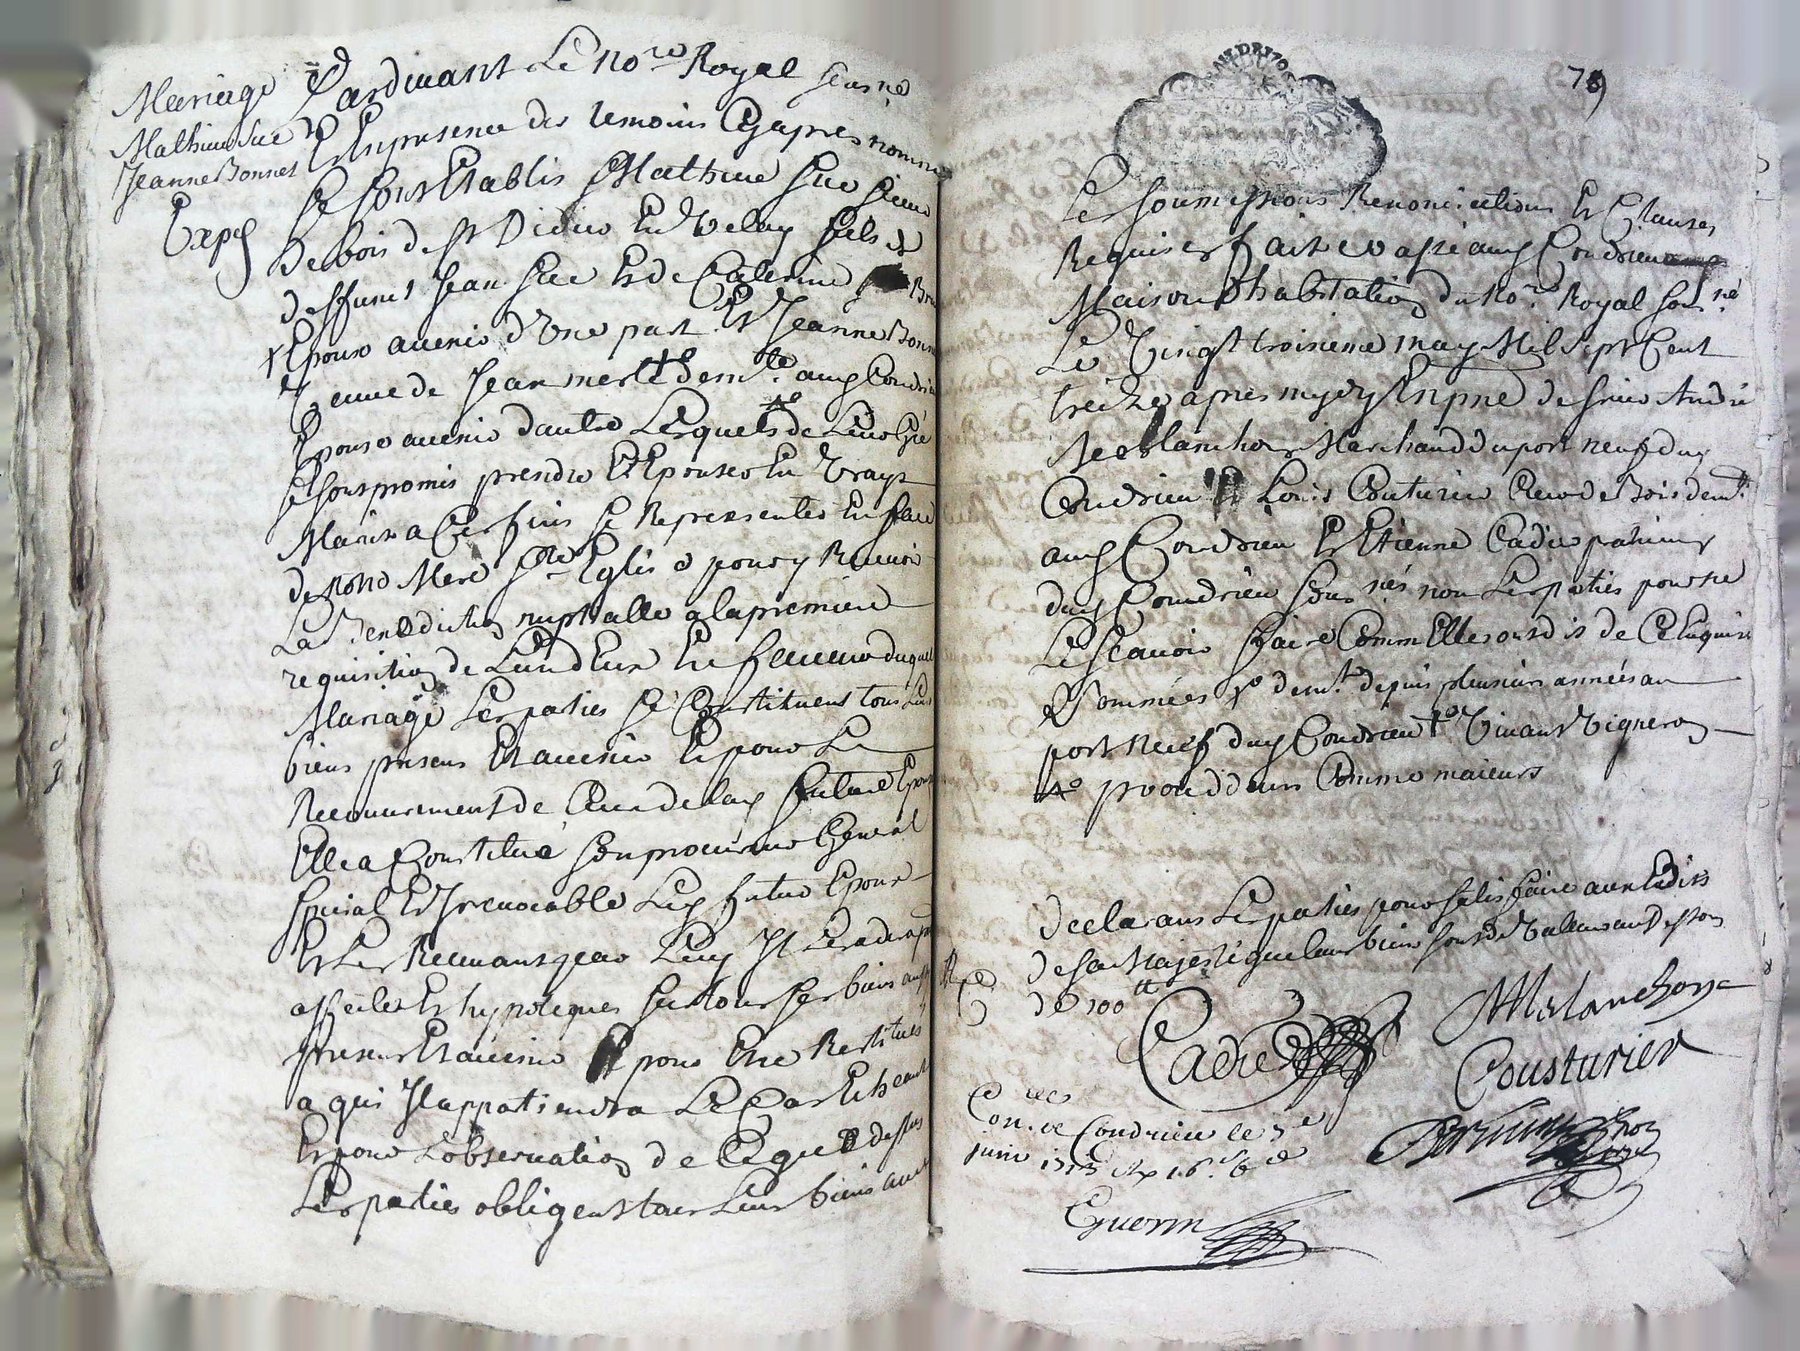 Mariage
Mathieu Sue
Jeanne Bonnet
Expé
Pardevant Le Nore Royal sousné
Et En presence des temoins Cy apres nommes
Se sont Establis Mathieu Sue
de bois de St Didier En Velay fils de
deffunt Jean Sue Et de Caterine
Epoux avenir d'Une part Et Jeanne Bonnet
veuve de Jean merle demte. au Condrieu
Epouse avenir d'autre Lesquels de Leur Gré
se sont promis prendre Et Epouser En Vrays
Mariés a Ces fins se Representer En face
de Notre Mere Ste Eglise pour y Recevoir
La Benediction nuptialle a la premiere
requisition de L'un d'Eux En faveur duquel
Mariage Les parties se Constituent tous Leurs
biens presens Et avenir Et pour Le
Recouvrement de Ceux de lad future Epouse
Elle a Constitué son procureur General
special Et Irrevocable Led futur Epoux
Et Les Recevant par Luy Il Les a des a pnt
affectés Et hypoteques sur tous ses biens
presens Et avenir pour Etre Restitués
a qui Il appartiendra Le Cas Echeant
Et pour L'observation de Ce que dessus
Les parties obligent tous Leurs biens avec
79
Les soumissions Renonciations Et Clauses
Requises fait Et passé aud Condrieu
Maison d'habitation du No.re Royal sous.né
Le Vingt troisieme may Mil sept Cent
treize apres mydy En pnce de sieur André
Meslanchon Marchand du port neuf dud
Condrieu Et Louis Couturier de Bois demt.
aud Condrieu Et Etienne Cadier
dud Condrieu sousnés non Les parties pour ne
Le sçavoir faire Comm'Elles ont dit de Ce Enquises
Et sommées demt. depuis plusieurs années au
port Neuf dud Condrieu Vivant Vigneron
procedans Comme majeurs
declarans Les parties pour satisfaire aux Edits
de sa Majesté que leurs biens sont de Valeur au dessous
de 100 tt
Meslanchon
Cadier
Cousturier
Con.lé a Condrieu le 3e
juin 1713
Guerin